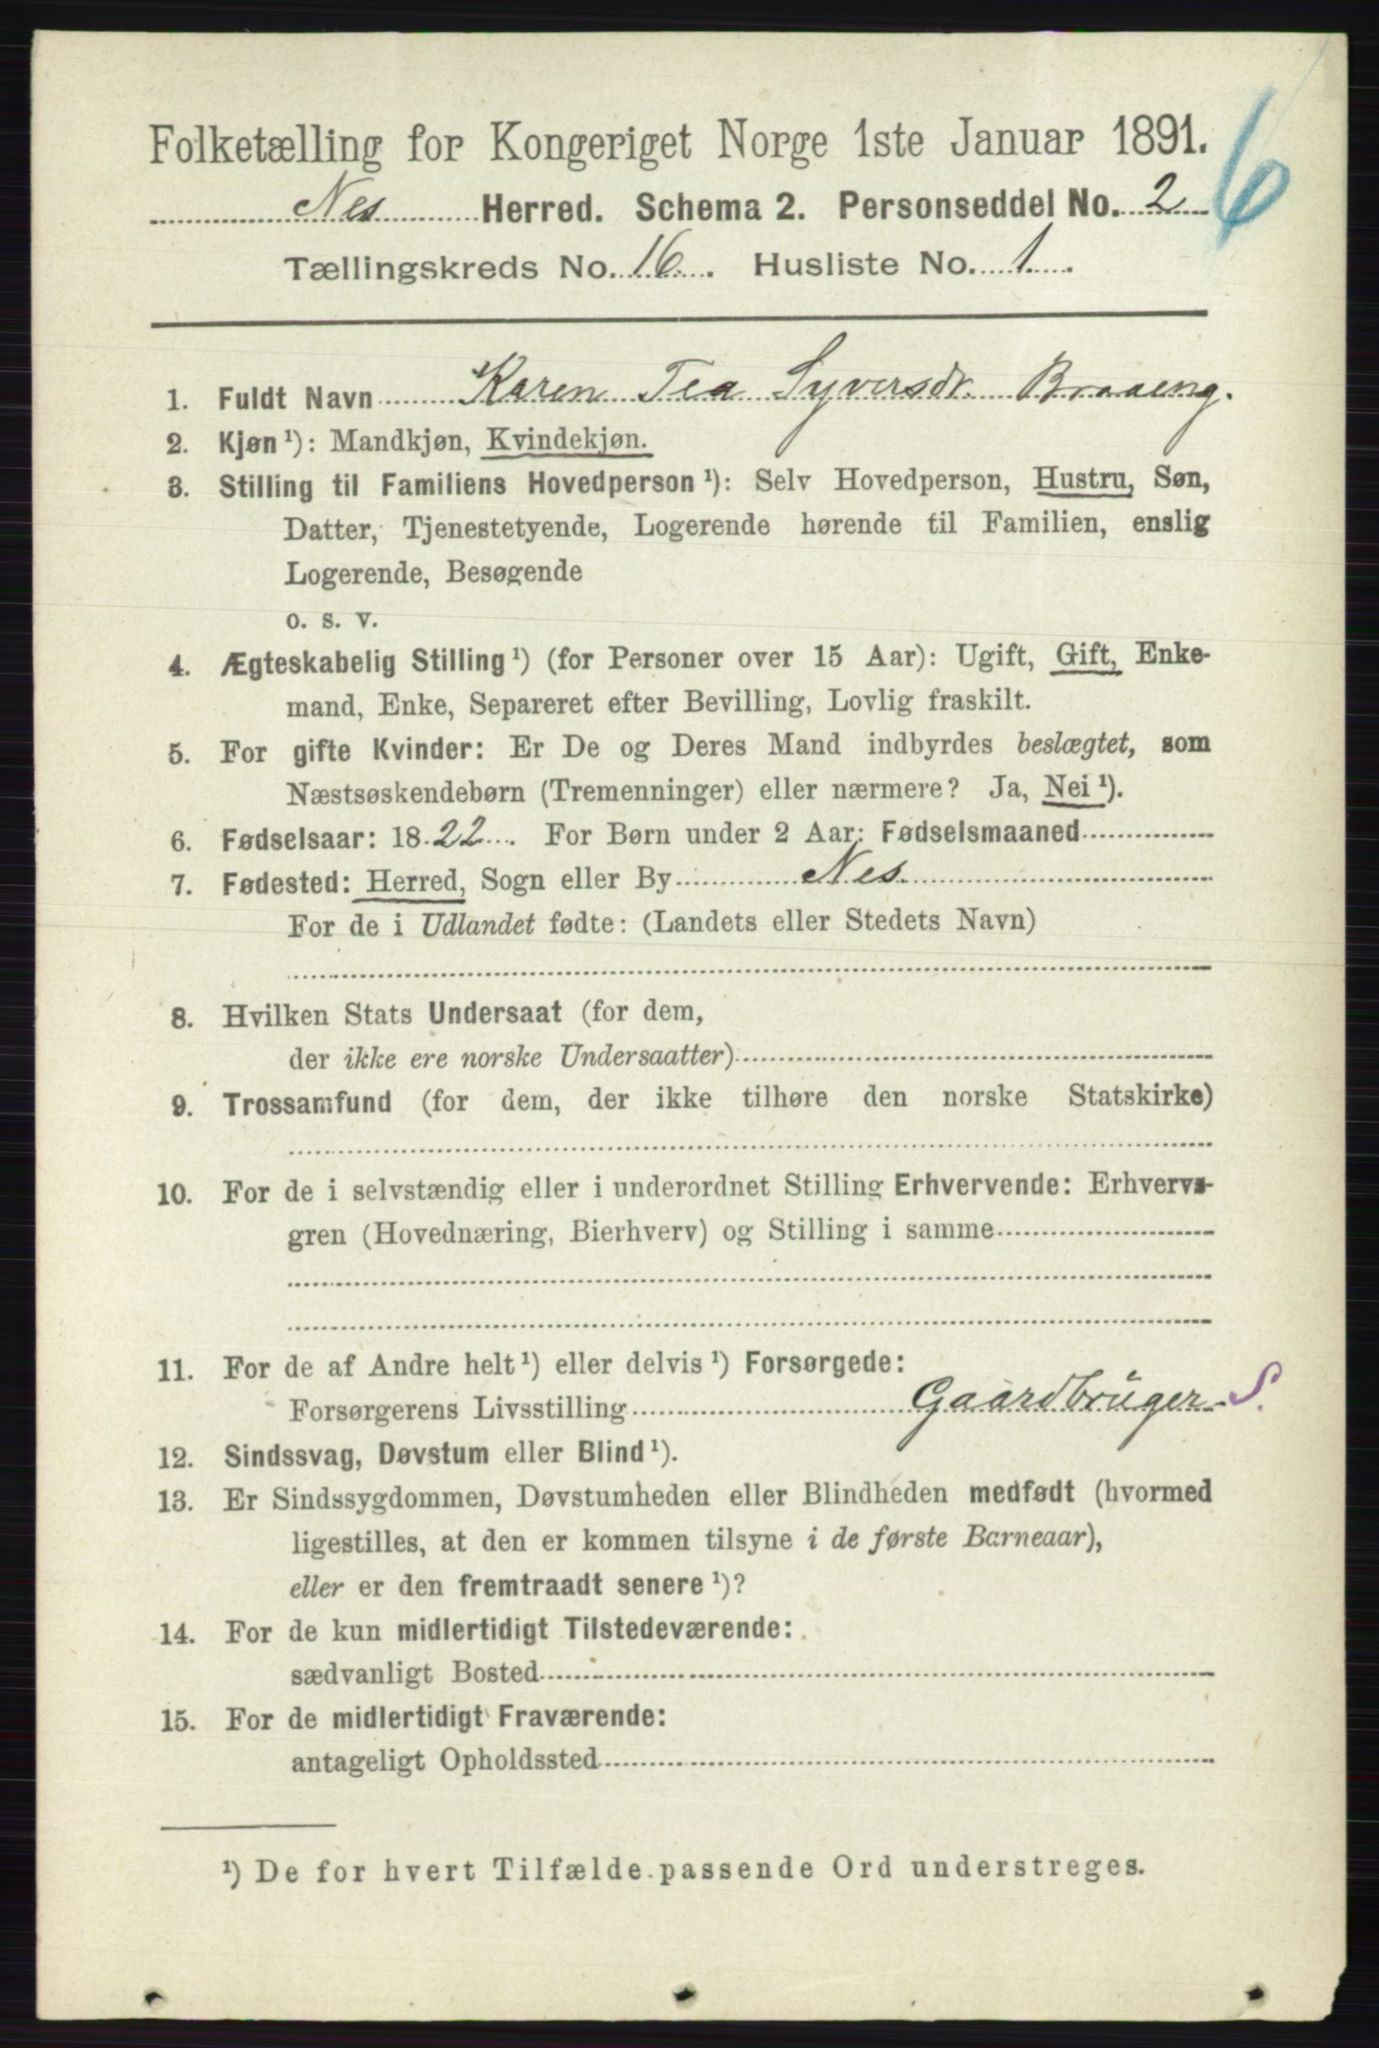 Folketælling for Kongeriget Norge 1ste Januar 1891.
6
Nes Herred. Schema 2. Personseddel No. 2
Tællingskreds No. 16. Husliste No. 1.
1. Fuldt Navn Karen Tea Syversdr. Braaeng.
2. Kjøn ¹): Mandkjøn, Kvindekjøn.
3. Stilling til Familiens Hovedperson ¹): Selv Hovedperson, Hustru, Søn,
Datter, Tjenestetyende, Logerende hørende til Familien, enslig
Logerende, Besøgende
o. s. v.
4. Ægteskabelig Stilling ¹) (for Personer over 15 Aar): Ugift, Gift, Enke-
mand, Enke, Separeret efter Bevilling, Lovlig fraskilt.
5. For gifte Kvinder: Er De og Deres Mand indbyrdes beslægtet, som
Næstsøskendebørn (Tremenninger) eller nærmere? Ja, Nei ¹).
6. Fødselsaar: 1822. For Børn under 2 Aar: Fødselsmaaned
7. Fødested: Herred, Sogn eller By Nes.
For de i Udlandet fødte: (Landets eller Stedets Navn)
8. Hvilken Stats Undersaat (for dem,
der ikke ere norske Undersaatter)
9. Trossamfund (for dem, der ikke tilhøre den norske Statskirke)
10. For de i selvstændig eller i underordnet Stilling Erhvervende: Erhvervs-
gren (Hovednæring, Bierhverv) og Stilling i samme
11. For de af Andre helt ¹) eller delvis ¹) Forsørgede:
Forsørgerens Livsstilling Gaardbrŭger S.
12. Sindssvag, Døvstum eller Blind ¹).
13. Er Sindssygdommen, Døvstumheden eller Blindheden medfødt (hvormed
ligestilles, at den er kommen tilsyne i de første Barneaar),
eller er den fremtraadt senere ¹)?
14. For de kun midlertidigt Tilstedeværende:
sædvanligt Bosted
15. For de midlertidigt Fraværende:
antageligt Opholdssted
¹) De for hvert Tilfælde passende Ord understreges.